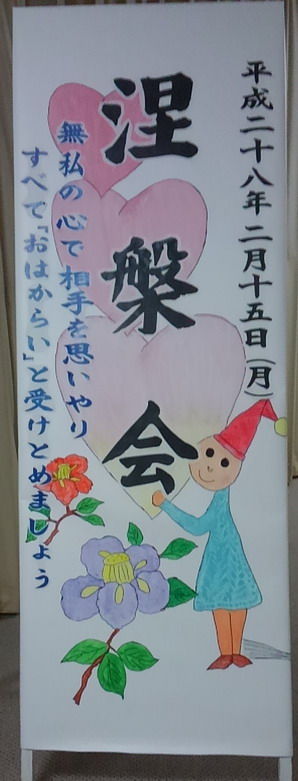 平成二十八年二月十五日(月)
涅槃会
無私の心で相手を思いやり
すべて「おはからい」と受けとめましょう